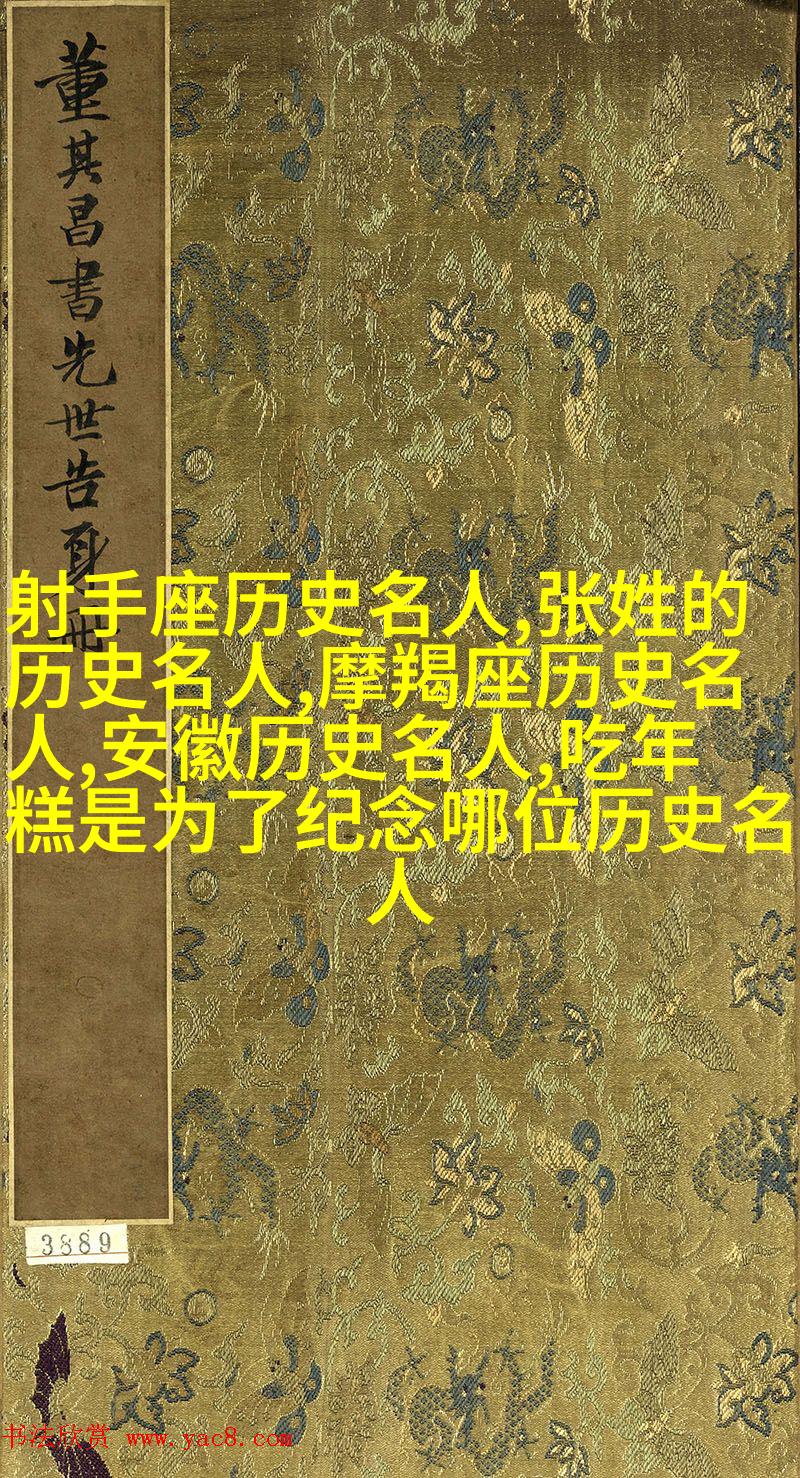 董其昌書先世告身册
射手座历史名人,张姓的
历史名人,摩羯座历史名
人,安徽历史名人,吃年
糕是为了纪念哪位历史名
人
3889
书法欣赏 www.yac8.com